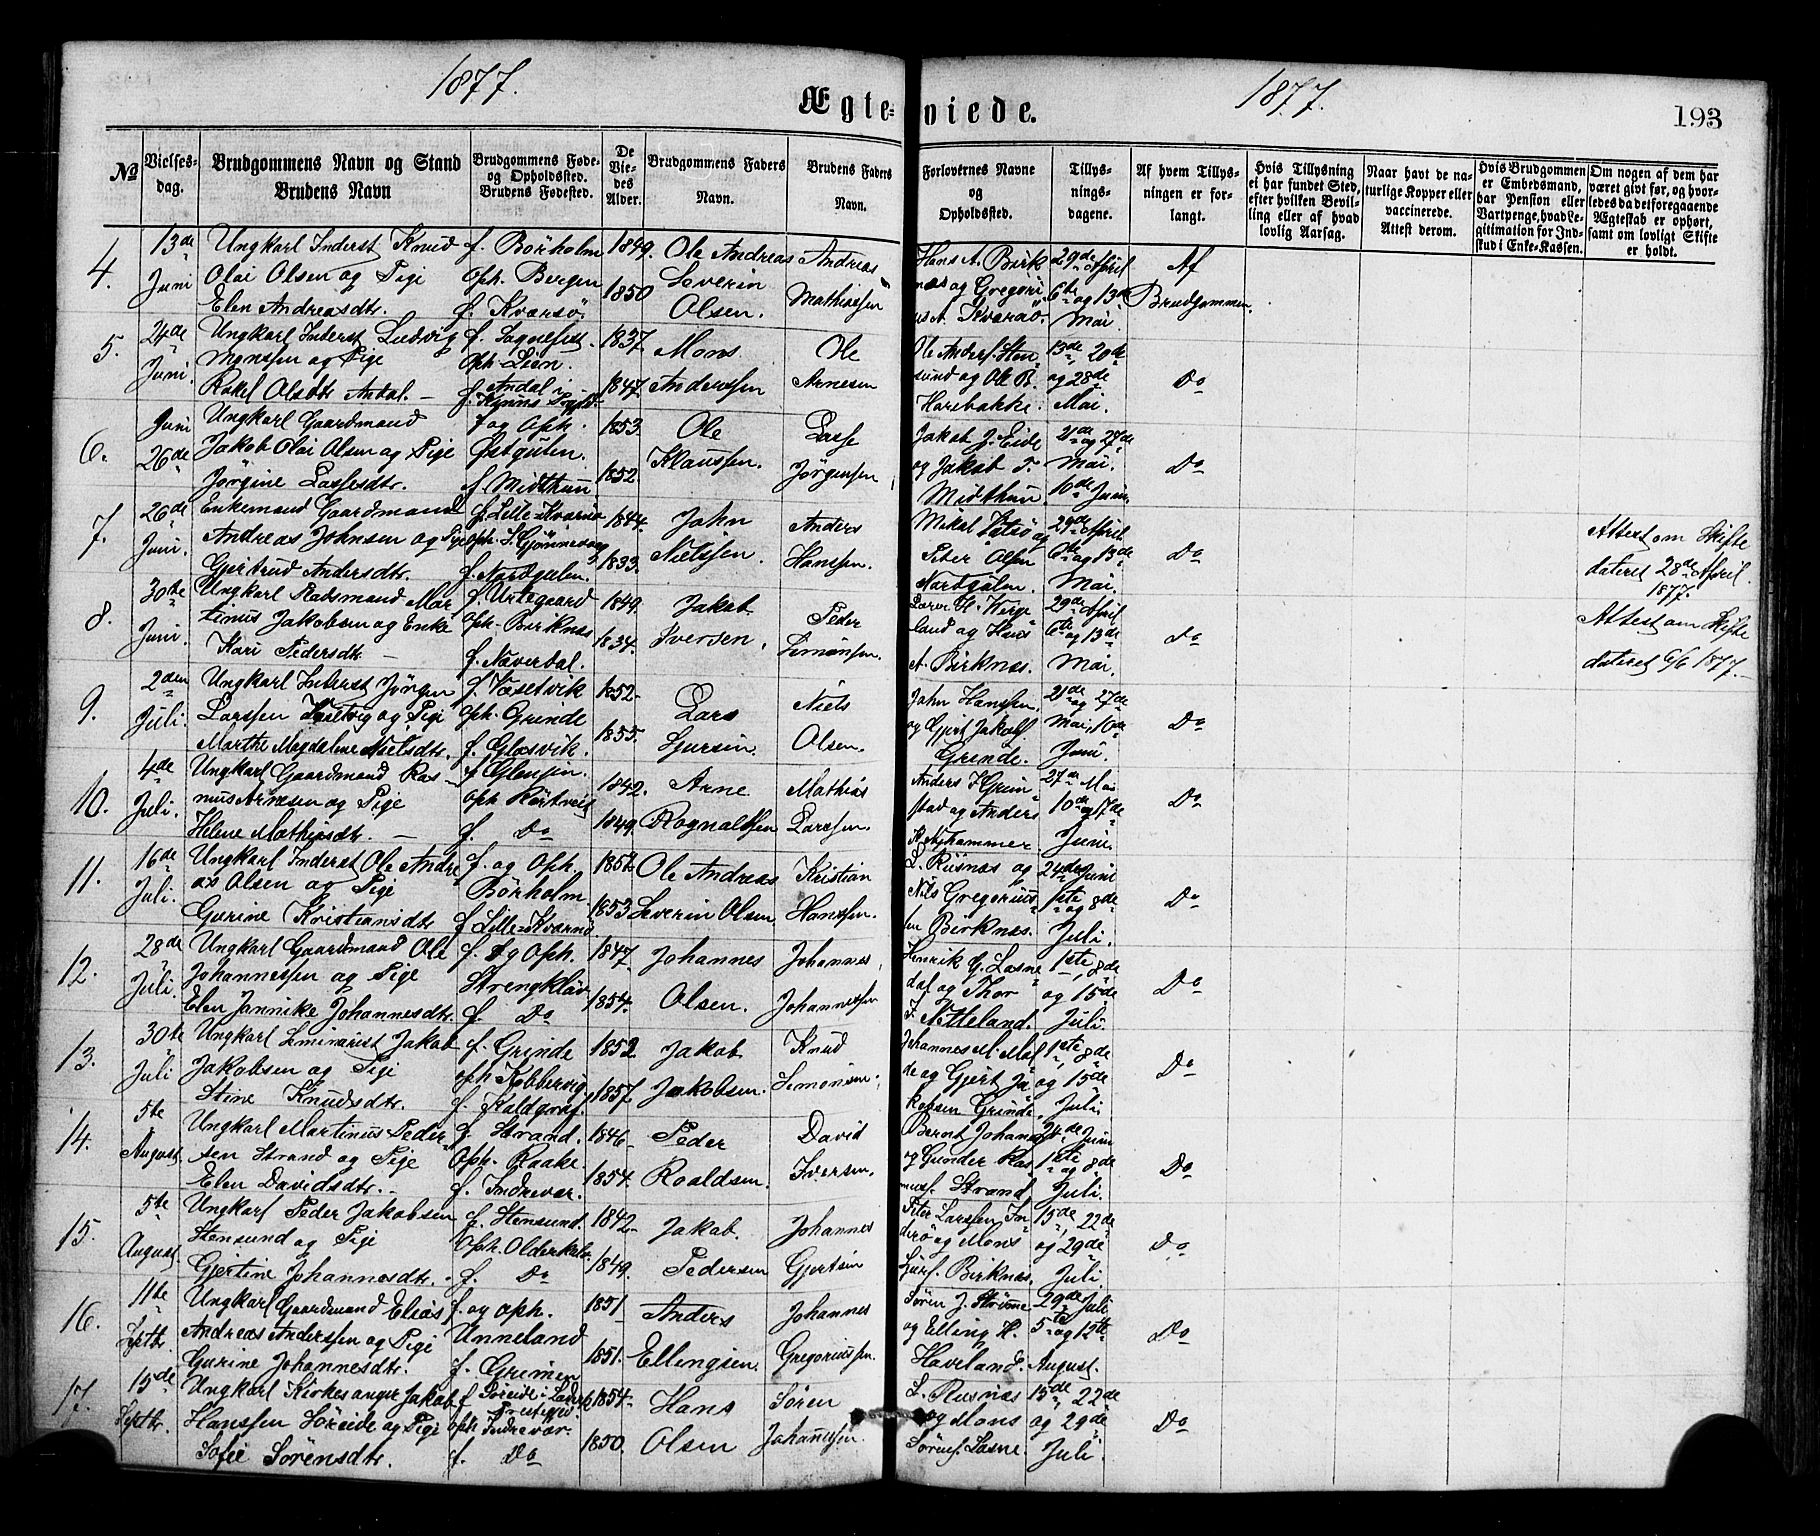 1877.
1877.
Ægte-viede.
193
No
Vielses-dag.
Brudgommens Navn og Stand
Brudens Navn
Brudgommens Føde- og Opholdssted.
Brudens Fødested.
De Viedes Alder.
Brudgommens Faders Navn.
Brudens Faders Navn.
Forlovernes Navne og Opholdssted.
Tillysningsdagene.
Af hvem Tillysningen er forlangt.
Hvis Tillysning ei har fundet Sted, efter hvilken Bevilling eller af hvad lovlig Aarsag.
Naar havt de naturlige Kopper eller vaccinerede. Attest derom.
Hvis Brudgommen er Embedsmand, har Pension eller Vartpenge, hvad Legitimation for Indskud i Enke-Kassen.
Om nogen af dem har været givt før, og hvorledes da det foregaaende Ægteskab er ophørt, samt om lovligt Skifte er holdt.
4.
13de Juni
Ungkarl Inderst Knud
Olai Olsen og Pige
Elen Andreasdtr.
f. Børholm
oph. Bergen
f. Kværsø.
1849.
1850
Ole Andreas
Severin
Olsen.
Andreas
Mathiassen
Hans A. Birk
næs og Gregori
us A. Kværsø.
29de April
6te og 13de
Mai.
Af
Brudgommen.
5.
24de Juni.
Ungkarl Inderst Ludvig
Monssen og Pige
Rakel Olsdtr Andal. –
f. Sognefest.
oph. Lien.
f. Andal i
1837
1847.
Mons
Anderssen
Ole
Arnesen
Ole Anders. Sten
sund og Ole B.
Harebakke.
13de, 20de
og 28de
Mai.
Do
6.
Juni 26de
Ungkarl Gaardmand
Jakob Olai Olsen og Pige
Jørgine Lassesdtr.
f og Oph.
Østgulen.
f. Midthun
1853.
1852.
Ole
Klaussen.
Lasse
Jørgensen
Jakob J. Eide
og Jakob T.
Midthun.
21de og 27de
Mai.
10de Juni.
Do
7.
26de Juni.
Enkemand Gaardmand
Andreas Johnsen og Pige
Gjertrud Andersdtr.
f. Lille-Kværnø
oph. S. Gjønnevaag
f. Nordgulen.
1844.
1833.
John
Nielssen.
Anders
Hanssen.
Mikel Vatsø og
Peter Olsen
Nordgulen.
29de April
6te og 13de
Mai.
Do
Attest om Skifte
dateret 28de April
1877.
8.
30te Juni.
Ungkarl Pladsmand Mar
tinus Jakobsen og Enke
Kari Pedersdtr. –
f. Urtegaard
oph. Birknes
f. Næverdal.
1849.
1834.
Jakob
Iversen.
Peder
Simonsen.
Lærer H. Verge
land og Hans
A. Birknæs.
29de April
6te og 13de
Mai.
Do
Attest om Skifte
dateret 6/6 1877.
9.
2den Juli.
Ungkarl Inderst Jørgen
Larssen Væsetvig og Pige
Marthe Magdalene Nielsdtr.
f. Væsetvik
oph. Grinde
f. Glosvik.
1852.
1855.
Lars
Sjursen.
Niels
Olsen.
John Hanssen
og Gjert Jakobs.
Grinde.
21de og 27de
Mai, 10de
Juni.
Do
10.
4de Juli.
Ungkarl Gaardmand Ras-
mus Arnesen og Pige
Helene Mathiasdtr. –
f. Glenjin.
oph. Rørtveig
f. Do
1842.
1849.
Arne
Rognaldsen
Mathias
Larssen.
Anders J. Grim
stad og Anders
K. Nyhammer.
27de Mai
10de og 17de
Juni.
Do
11.
16de Juli.
Ungkarl Inderst Ole Andre
as Olsen og Pige
Gurine Kristiansdtr
f. og Oph.
Børholm
f. Lille-Kværnø
1852
1853
Ole Andreas
Severin Olsen
Kristian
Hanssen.
L. Risnæs og
Nils Gregorius
sen Birknæs.
24de Juni
1ste og 8de
Juli.
Do
12.
28de Juli.
Ungkarl Gaardmand Ole
Johannessen og Pige
Elen Jannike Johannesdtr.
f. og Oph.
Strengklav
f. Do
1847.
1854.
Johannes
Olsen.
Johannes
Johannessen
Henrik G. Lasne
dal og Thor
I. Netteland.
1ste, 8de
og 15de
Juli.
Do
13.
30te Juli
Ungkarl Seminarist Jakob
Jakobsen og Pige
Stine Knudsdtr.
f. Grinde
oph. Kobbervig
f. Koldgrøf.
1852
1857.
Jakob
Jakobsen.
Knud
Simonsen.
Johannes M. Mol
de og Gjert Ja
kobsen Grinde.
1ste, 8de
og 15de
Juli.
Do
14.
5te August
Ungkarl Martinus Peder
sen Strand og Pige
Elen Davidsdtr.
f. Strand.
Oph. Raake.
f. Indrevær.
1846.
1854.
Peder
Roaldsen.
David
Iversen.
Bernt Johans.
og Gunder Ras
muss. Strand
24de Juni
1ste og 8de
Juli.
Do
15.
5te August.
Ungkarl Peder Jakobsen
Stensund og Pige
Gjertine Johannesdtr.
f. Stensund.
Oph. Olderkalv
f. Do
1842.
1849.
Jakob.
Pedersen
Johannes
Gjertsen
Peter Larssen In
derø og Mons
Gjurs. Birknæs.
15de, 22de
og 29de
Juli.
Do
16.
11te Septbr.
Ungkarl Gaardmand Elias
Andreas Anderssen og Pige
Gurine Johannesdtr.
f. og oph.
Unneland
f. Grimen
1851.
1851.
Anders
Ellingsen.
Johannes
Gregoriussen.
Søren J. Strømme
og Elling H.
Haveland.
29de Juli
5te og 12te
August.
Do
17.
15de Septbr.
Ungkarl Kirkesanger Jakob
Hanssen Søreide og Pige
Sofie Sørensdtr.
f. Søreide i
oph. Indrevær.
f. Do
1854.
1850.
Hans
Olsen
Søren
Johannessen.
L. Risnæs
og Mons
Sørens. Lasne.
15de, 22de
og 29de
Juli.
Do